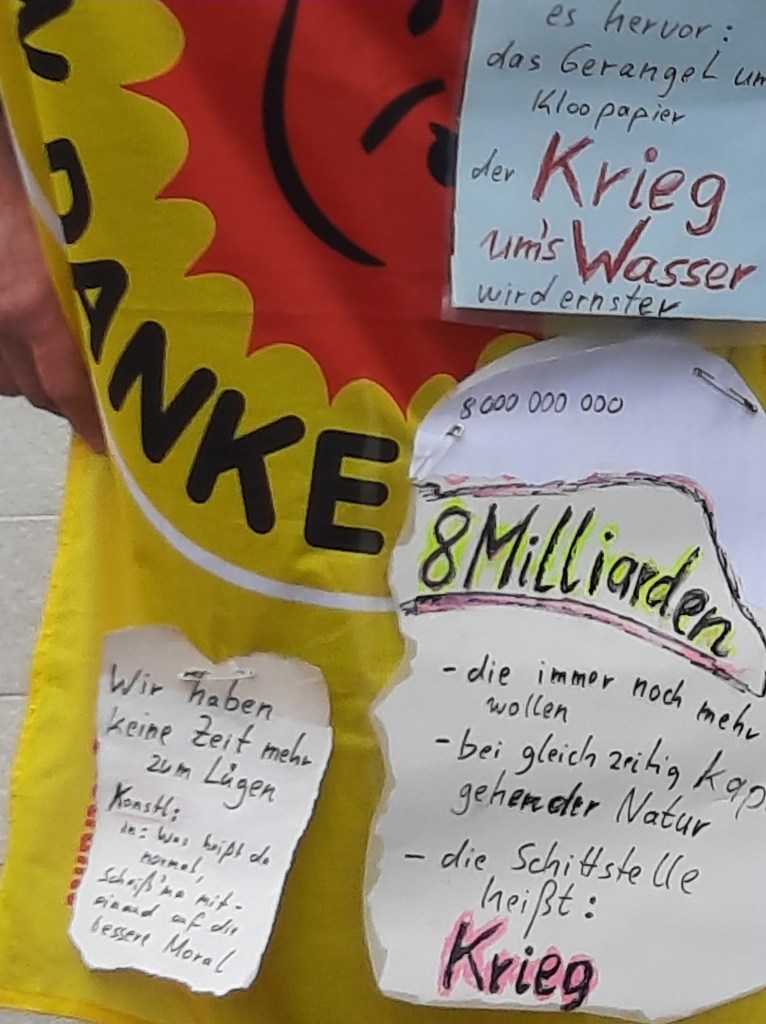 es hervor:
das Gerangel um
Kloopapier
der Krieg
um's Wasser
wird ernster
DANKE
8 000 000 000
8 Milliarden
- die immer noch mehr
wollen
- bei gleich zeitig kap
gehender Natur
- die Schittstelle
heißt:
Krieg
Wir haben
keine Zeit mehr
zum Lügen
Konstl:
in: Was heißt da
normal,
scheiß'ma mit-
einand auf die
bessere Moral